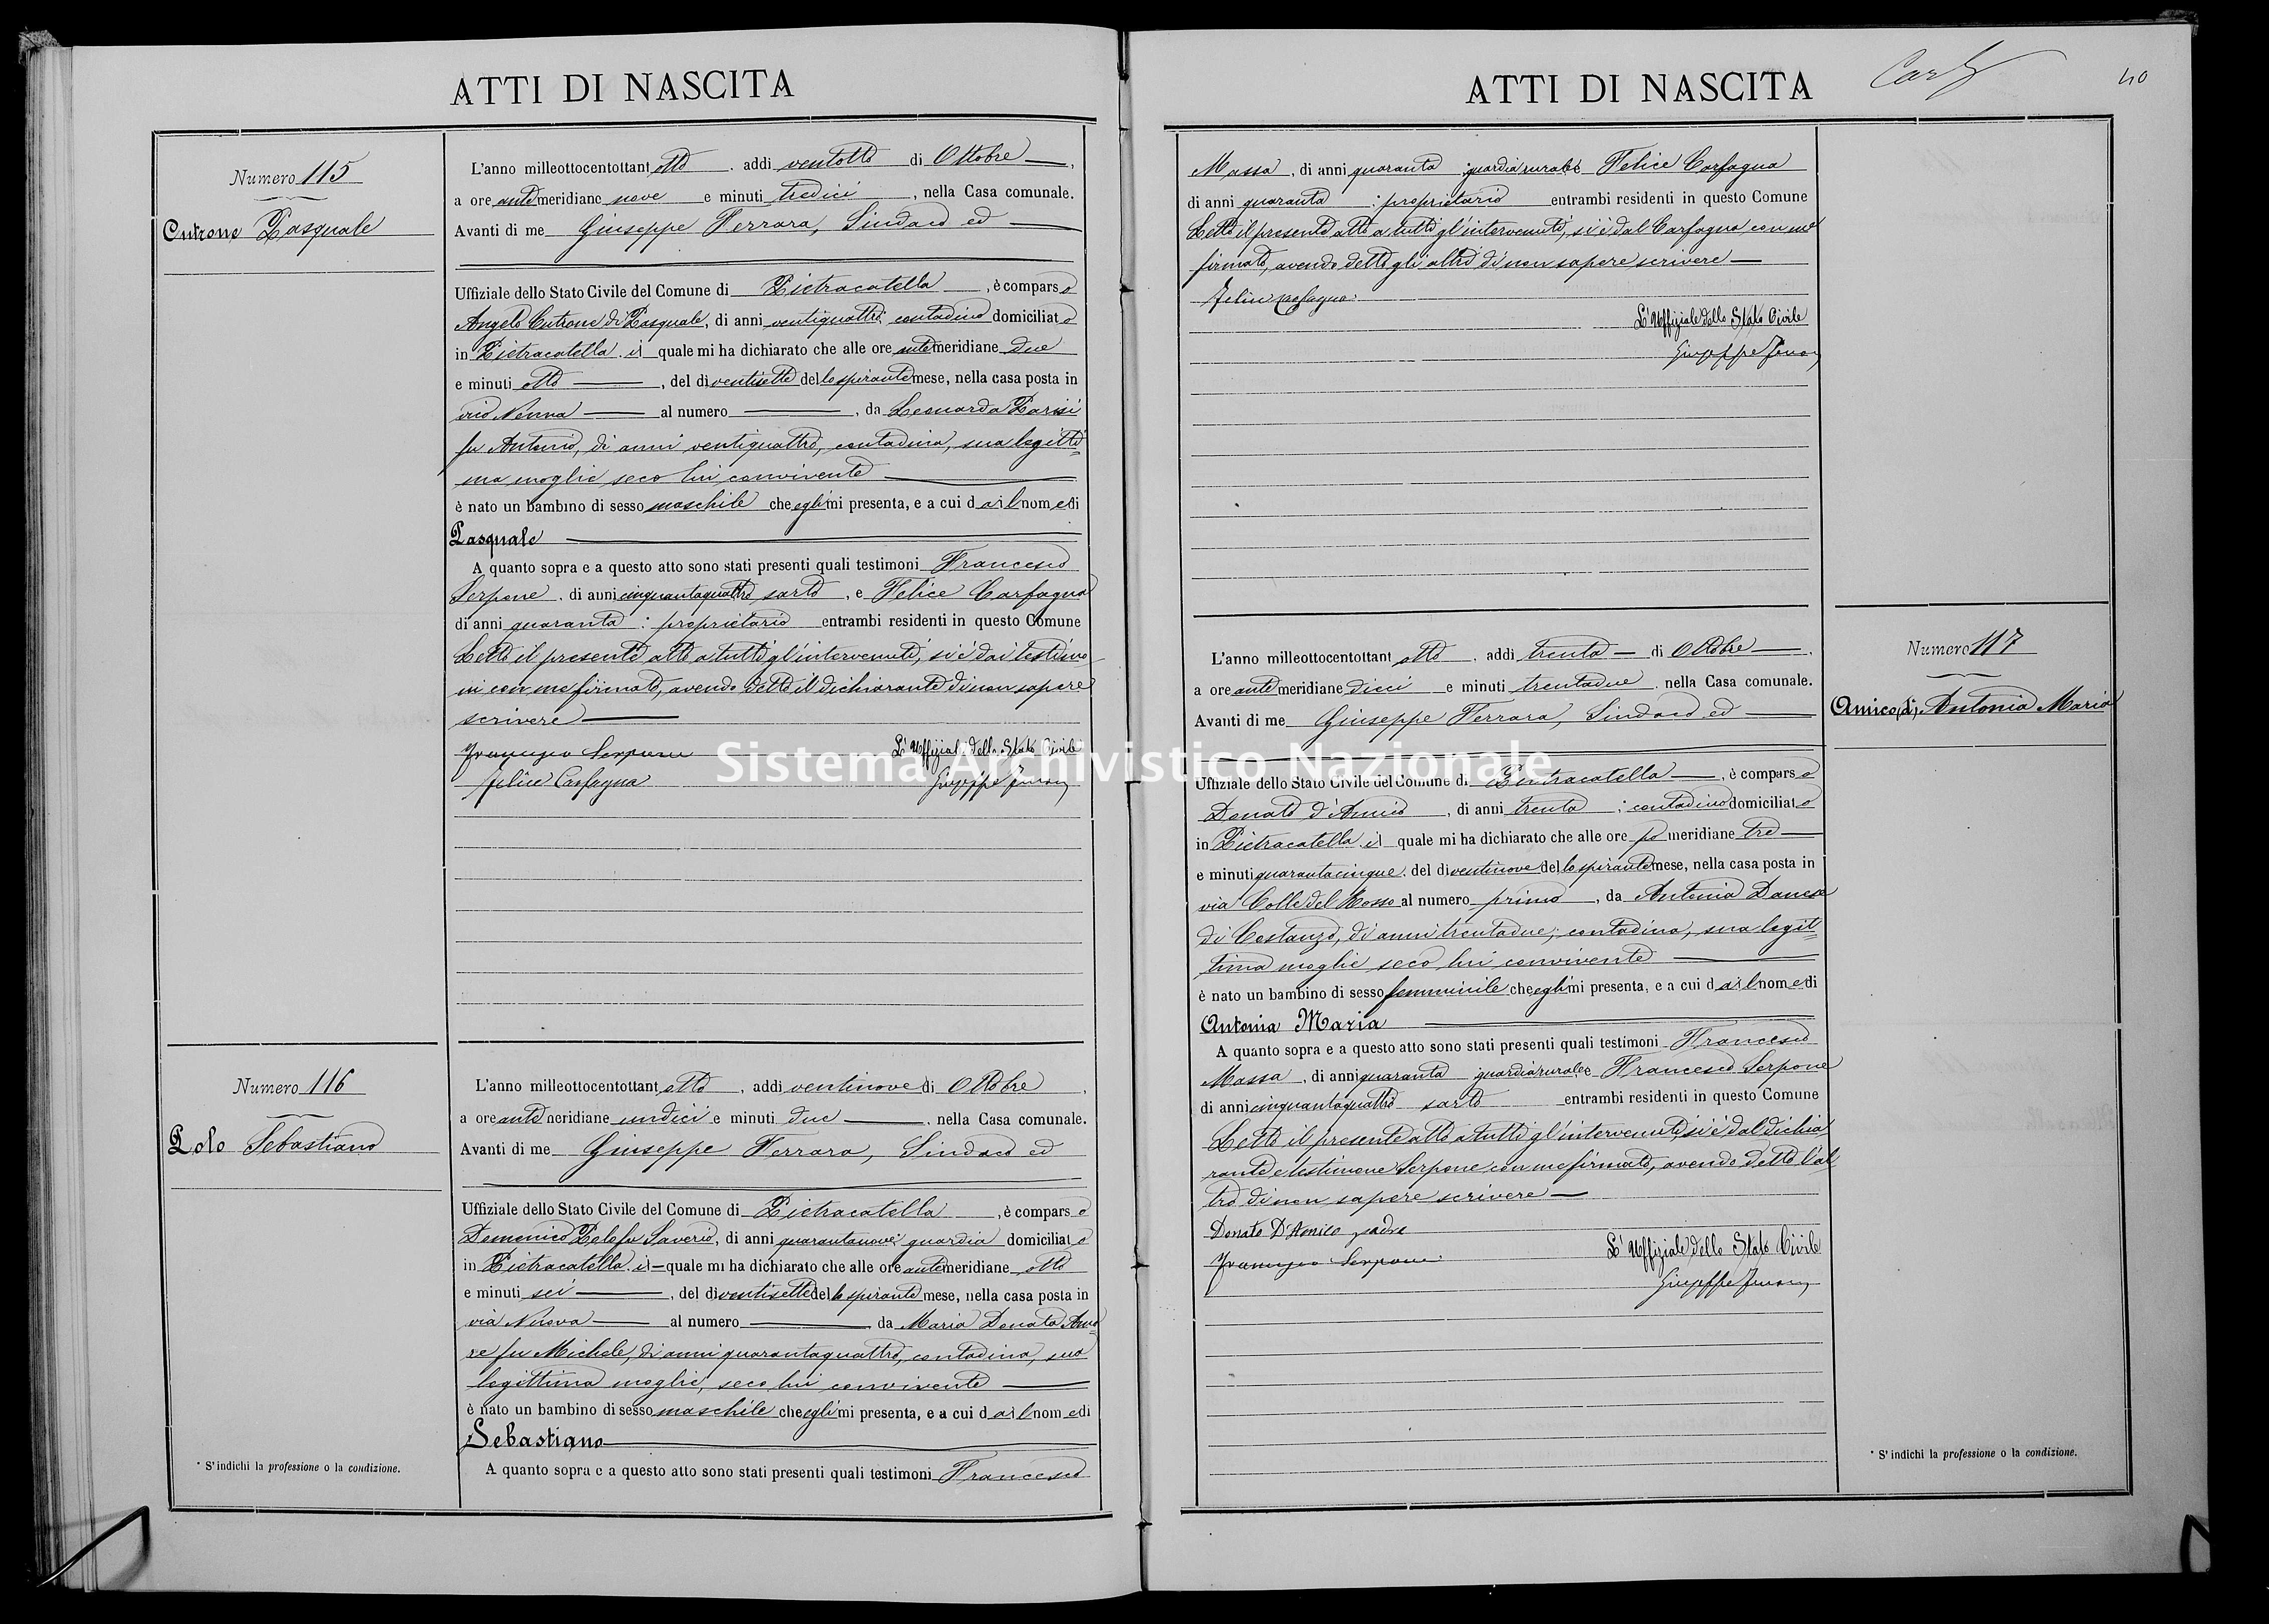 ATTI DI NASCITA
Numero 115
Cutrone Pasquale
L'anno milleottocentottantotto, addi ventotto di Ottobre
a ore antemeridiane nove e minuti tredici, nella Casa comunale.
Avanti di me Giuseppe Ferrara, Sindaco ed
Uffiziale dello Stato Civile del Comune di Pietracatella, è comparso
Angelo Cutrone di Pasquale, di anni ventiquattro; contadino domiciliato
in Pietracatella, il quale mi ha dichiarato che alle ore antemeridiane due
e minuti otto, del dì ventisette dello spirante mese, nella casa posta in
via Nuova al numero, da Leonarda Parisi
fu Antonio, di anni ventiquattro, contadina, sua legitti=
ma moglie seco lui convivente
è nato un bambino di sesso maschile che egli mi presenta, e a cui dà il nome di
Pasquale
A quanto sopra e a questo atto sono stati presenti quali testimoni Francesco
Serpone, di anni cinquantaquattro sarto, e Felice Carfagna
di anni quaranta; proprietario entrambi residenti in questo Comune
Letto il presente atto a tutti gl'intervenuti, si è dai testimo
ni con me firmato, avendo detto il dichiarante di non sapere
scrivere
Francesco Serpone L'Uffiziale dello Stato Civile
Felice Carfagna Giuseppe Ferrara
Numero 116
Polo Sebastiano
L'anno milleottocentottantotto, addi ventinove di Ottobre,
a ore antemeridiane undici e minuti due, nella Casa comunale.
Avanti di me Giuseppe Ferrara, Sindaco ed
Uffiziale dello Stato Civile del Comune di Pietracatella, è comparso
Domenico Polo fu Saverio, di anni quarantanove; guardia domiciliato
in Pietracatella, il quale mi ha dichiarato che alle ore antemeridiane otto
e minuti sei, del dì ventisette dello spirante mese, nella casa posta in
via Nuova al numero da Maria Donata Amo=
re fu Michele, di anni quarantaquattro, contadina, sua
legittima moglie, seco lui convivente
è nato un bambino di sesso maschile che egli mi presenta, e a cui dà il nome di
Sebastiano
A quanto sopra e a questo atto sono stati presenti quali testimoni Francesco
* S'indichi la professione o la condizione.
ATTI DI NASCITA
40
Massa, di anni quaranta guardia rurale e Felice Carfagna
di anni quaranta; proprietario entrambi residenti in questo Comune
Letto il presente atto a tutti gl'intervenuti, si è dal Carfagna con me
firmato, avendo detto gli altri di non sapere scrivere
Felice Carfagna
L'Uffiziale dello Stato Civile
Giuseppe Ferrara
Numero 117
Amico (d') Antonia Maria
L'anno milleottocentottantotto, addi trenta di Ottobre
a ore antemeridiane dieci e minuti trentadue, nella Casa comunale.
Avanti di me Giuseppe Ferrara, Sindaco ed
Uffiziale dello Stato Civile del Comune di Pietracatella, è comparso
Donato d'Amico, di anni trenta; contadino domiciliato
in Pietracatella, il quale mi ha dichiarato che alle ore pomeridiane tre
e minuti quarantacinque, del dì ventinove dello spirante mese, nella casa posta in
via Colle del Rosso al numero primo, da Antonia Danese
di Costanzo, di anni trentadue, contadina, sua legit=
tima moglie seco lui convivente
è nato un bambino di sesso femminile che egli mi presenta, e a cui dà il nome di
Antonia Maria
A quanto sopra e a questo atto sono stati presenti quali testimoni Francesco
Massa, di anni quaranta guardia rurale e Francesco Serpone
di anni cinquantaquattro sarto entrambi residenti in questo Comune
Letto il presente atto a tutti gl'intervenuti, si è dal dichia
rante e testimone Serpone con me firmato, avendo detto l'al
tro di non sapere scrivere
Donato D'Amico padre
Francesco Serpone L'Uffiziale dello Stato Civile
Giuseppe Ferrara
* S'indichi la professione o la condizione.
Sistema Archivistico Nazionale